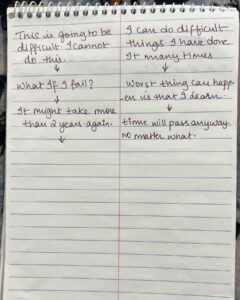 This is going to be
difficult. I cannot
do this.
↓
What If I fail?
↓
It might take more
than 2 years again.
↓
I can do difficult
things. I have done
It many times
↓
Worst thing can happ
-en us that I learn.
↓
time will pass anyway.
no matter what.